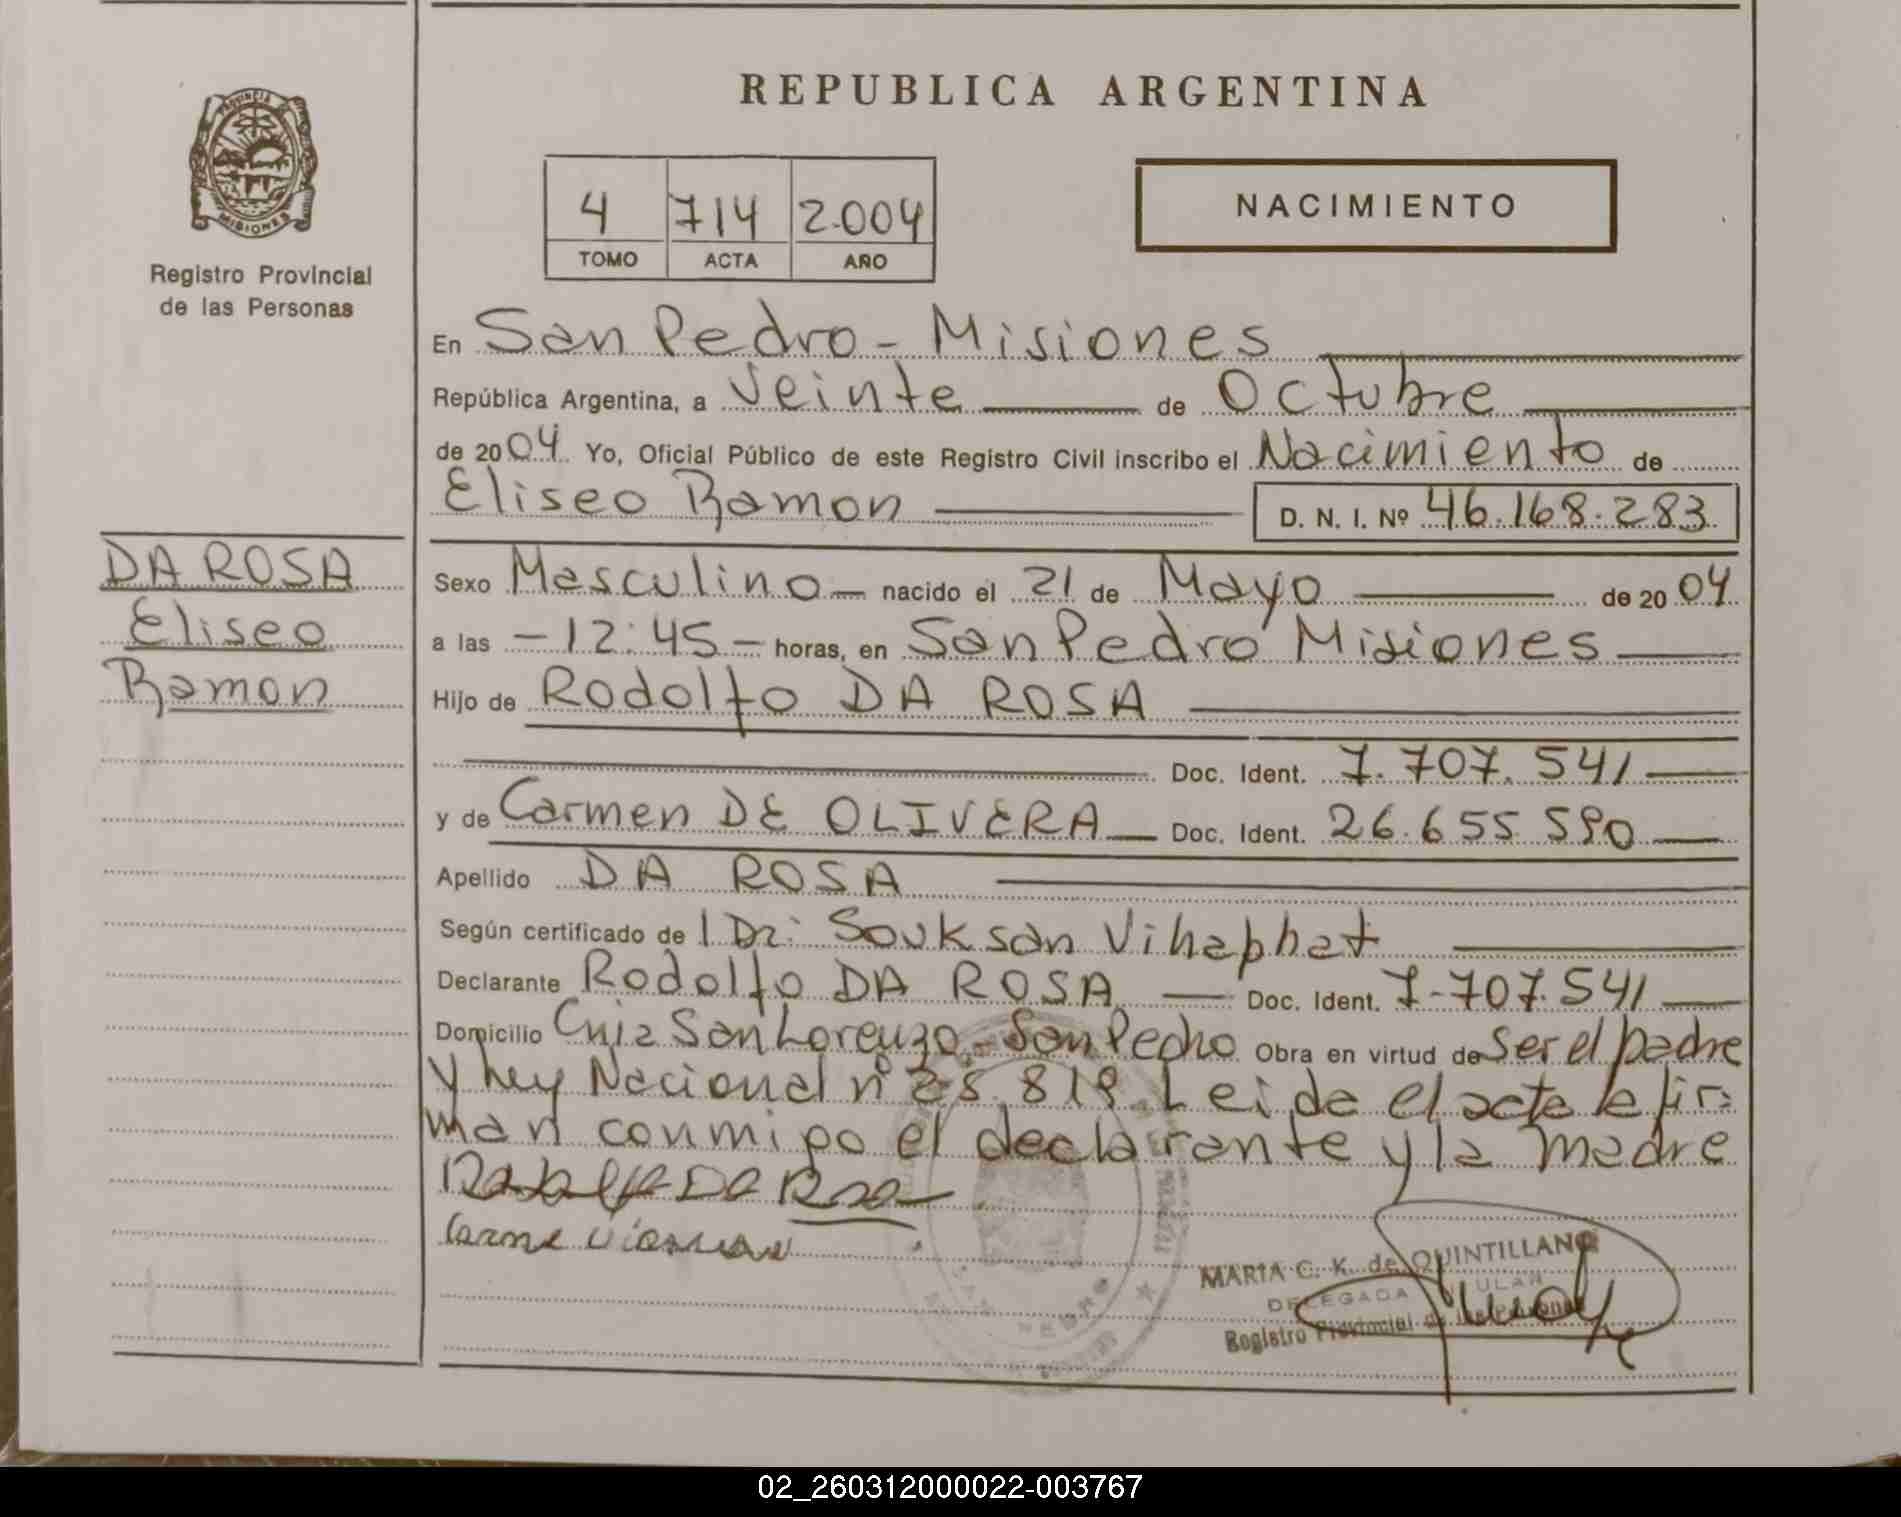 REPUBLICA ARGENTINA
PROVINCIA
MISIONES
Registro Provincial
de las Personas
4 714 2.004
TOMO ACTA AÑO
NACIMIENTO
En San Pedro - Misiones
República Argentina, a veinte de Octubre
de 2004 Yo, Oficial Público de este Registro Civil inscribo el Nacimiento de
Eliseo Ramon D. N. I. Nº 46.168.283
DA ROSA
Eliseo
Ramon
Sexo Masculino nacido el 21 de Mayo de 2004
a las - 12:45 - horas, en San Pedro Misiones
Hijo de Rodolfo DA ROSA
Doc. Ident. 7.707.541
y de Carmen DE OLIVERA Doc. Ident. 26.655.590
Apellido DA ROSA
Según certificado de l Dr: Souksan Vihaphat
Declarante Rodolfo DA ROSA Doc. Ident. 7-707.541
Domicilio Cnia San Lorenzo - San Pedro Obra en virtud de Ser el padre
y ley Nacional nº 25.819. Leida el acta la fir=
man conmigo el declarante y la madre
MARIA C. K. de QUINTILLANO
DELEGADA TITULAR
Registro Provincial de las Personas
02_260312000022-003767